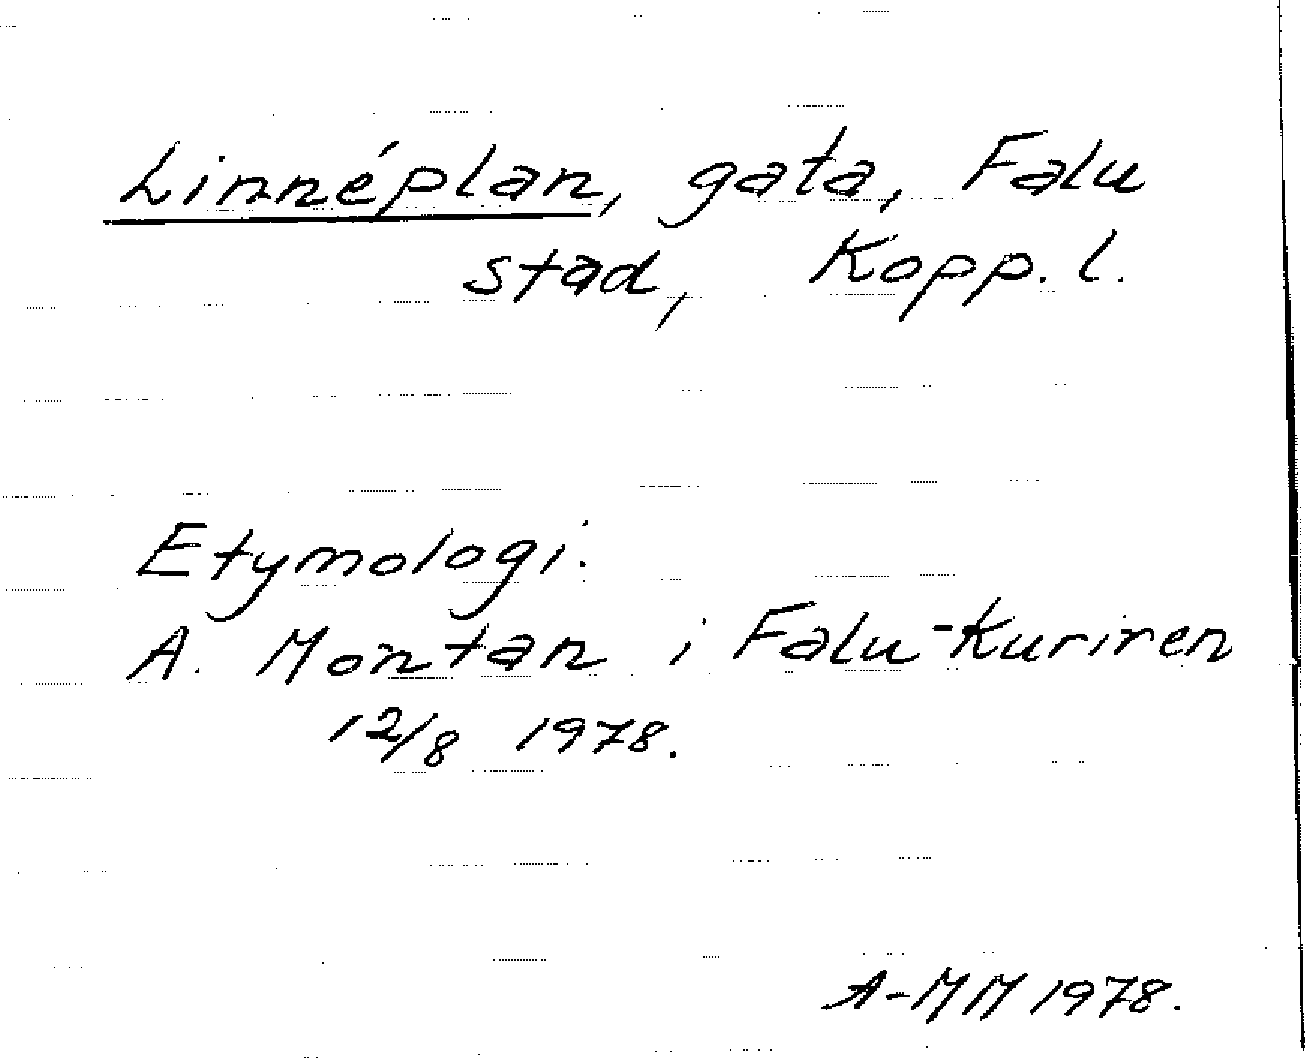 Linnéplan, gata, Falu
stad, Kopp. l.
Etymologi.
A. Montan i Falu-Kuriren
12/8 1978.
A-MM 1978.